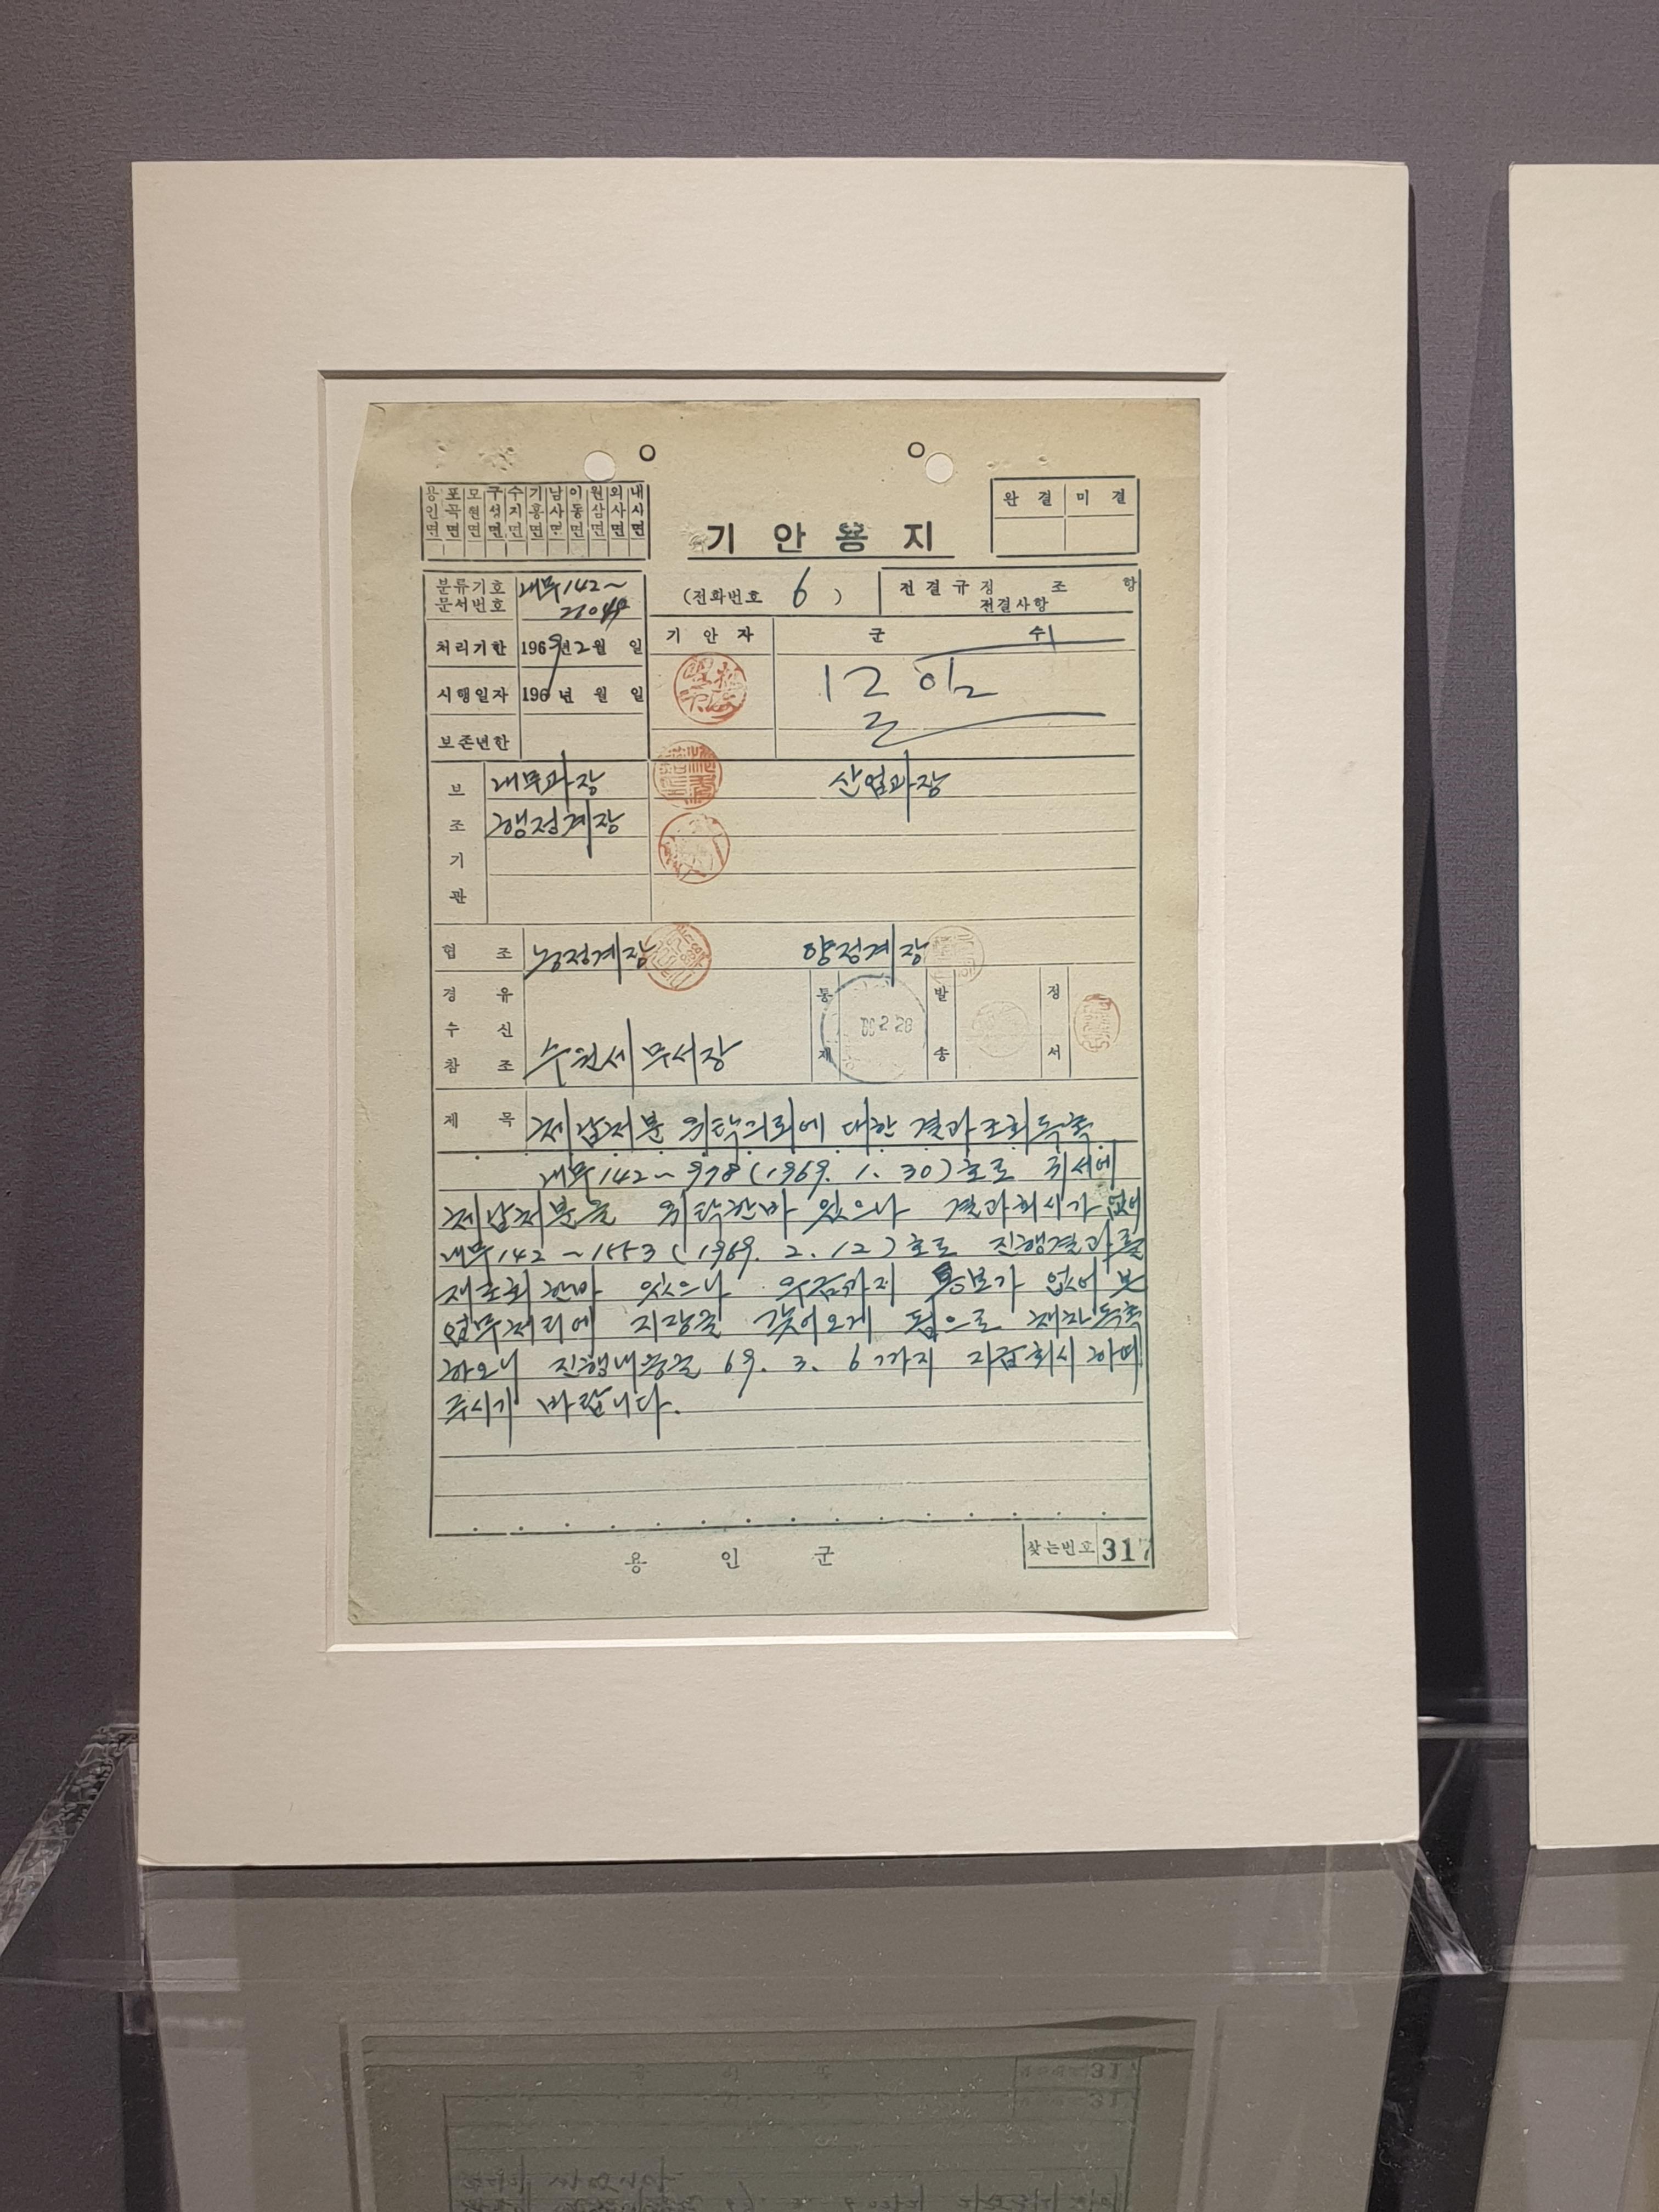 용인면 포곡면 모현면 구성면 수지면 기흥면 남사면 이동면 원삼면 외사면 내사면
기 안 용 지
완 결 미 결
분류기호 문서번호 내무142~
(전화번호 6 )
전결규정 조 항
전결사항
처리기한 1969년 2월 일
기 안 자
군 수
시행일자 196 년 월 일
보존년한
보조기관
내무과장
산업과장
행정계장
협 조 농정계장 양정계장
경 유
수 신
참 조
수원세무서장
통제
발송
정서
제 목 체납처분 위탁의뢰에 대한 결과조회독촉
내무142~978(1969. 1. 30)호로 귀서에
체납처분을 위탁한바 있으나 결과회시가 없어
내무142~1553(1969. 2. 12)호로 진행결과를
재조회한바 있으나 우금까지 통보가 없어 본
업무처리에 지장을 갖어오게 됨으로 재차독촉
하오니 진행내용을 69. 3. 6까지 지급회시 하여
주시기 바랍니다.
용 인 군
찾는번호 317